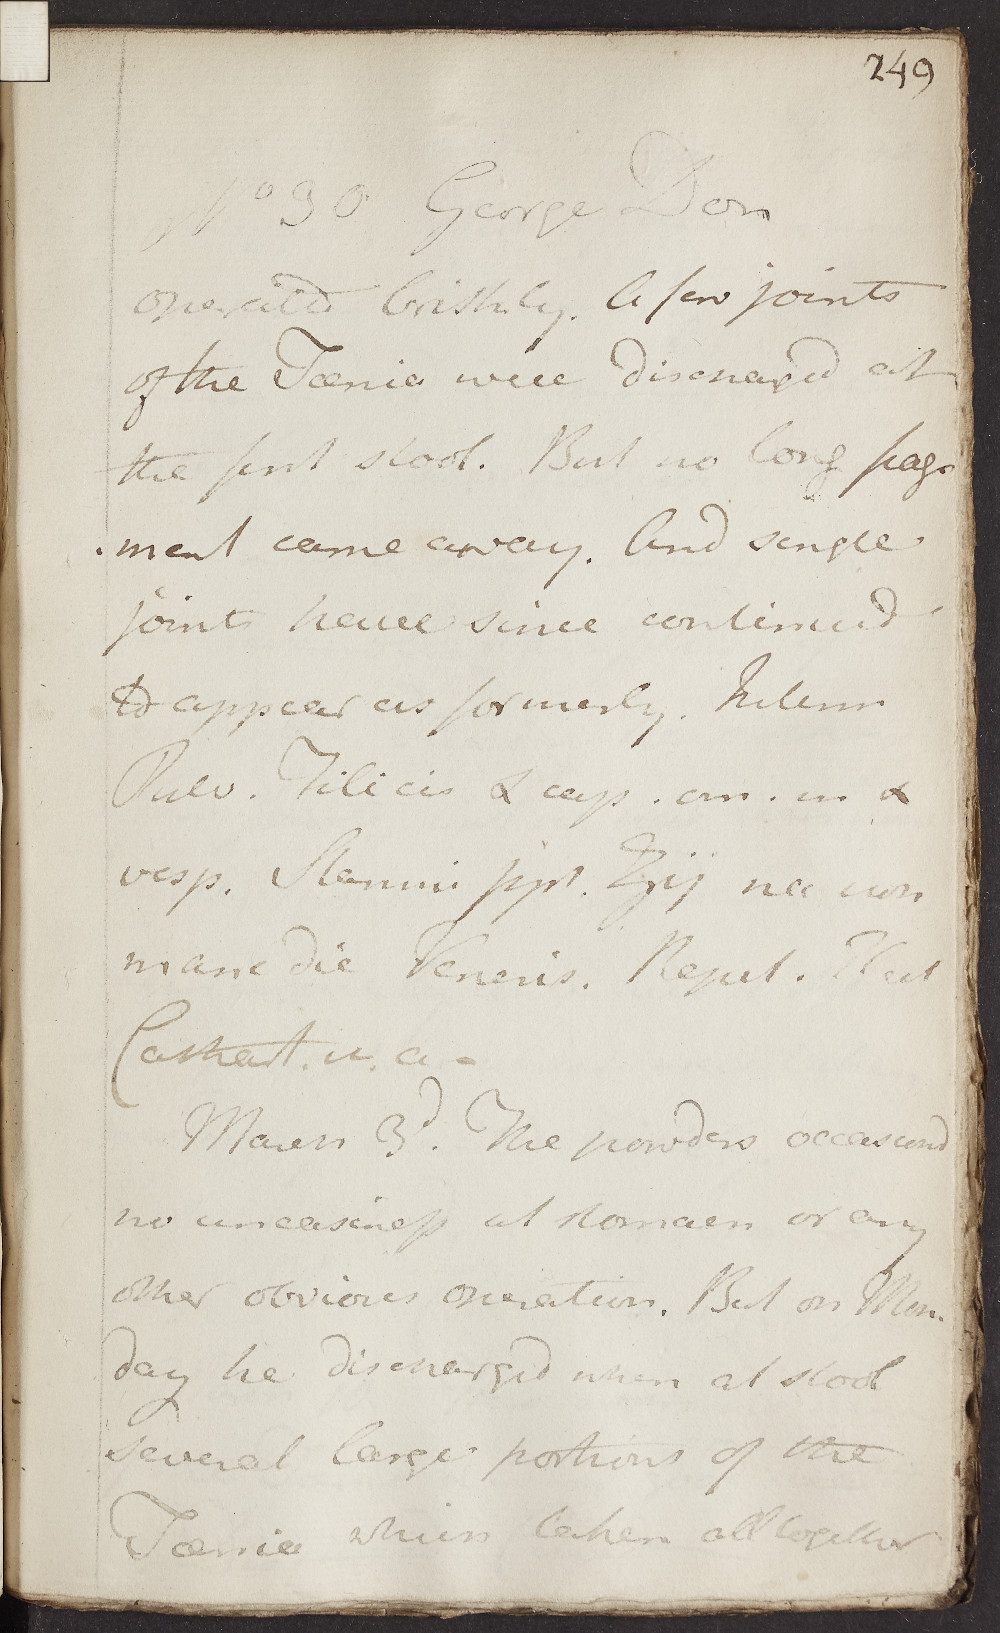 249
No 90 George Don
operated briskly. A few joints
of the Tœnia were discharged at
the first stool. But no long frag-
-ment came away. And single
joints have since continued
to appear as formerly.
Pulv. Filicis & cap. om. m &
vesp. Stanni ppt. ʒij
mane die Veneris. Repet. 
Cathart. u. a -
March 3d. The powders occasiond
no uneasiness at stomach or any
other obvious operation. But on Mon-
day he discharged when at stool
several large portions of the
Tœnia which taken all together